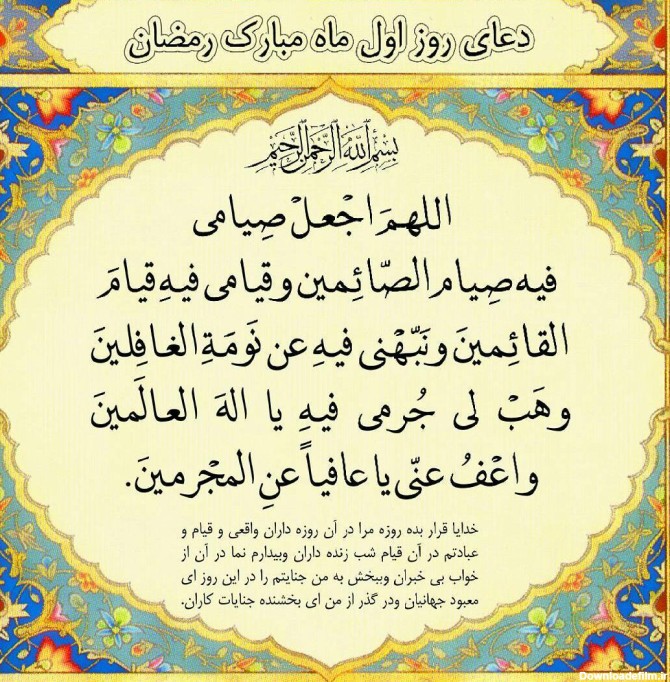 دعای روز اول ماه مبارک رمضان
بِسْمِ اللهِ الرَّحْمنِ الرَّحِيمِ
اللهمَ اجْعلْ صِیامی
فیه صِیام الصّائِمین و قیامی فیهِ قیامَ
القائِمینَ و نَبّهْنی فیهِ عن نَومَةِ الغافِلینَ
وهَبْ لی جُرمی فیهِ یا الهَ العالَمینَ
واعْفُ عنّی یا عافیاً عنِ المجْرمینَ.
خدایا قرار بده روزه مرا در آن روزه داران واقعی و قیام و
عبادتم در آن قیام شب زنده داران وبیدارم نما در آن از
خواب بی خبران وببخش به من جنایتم را در این روز ای
معبود جهانیان ودر گذر از من ای بخشنده جنایات کاران.
Downloadefilm.ir